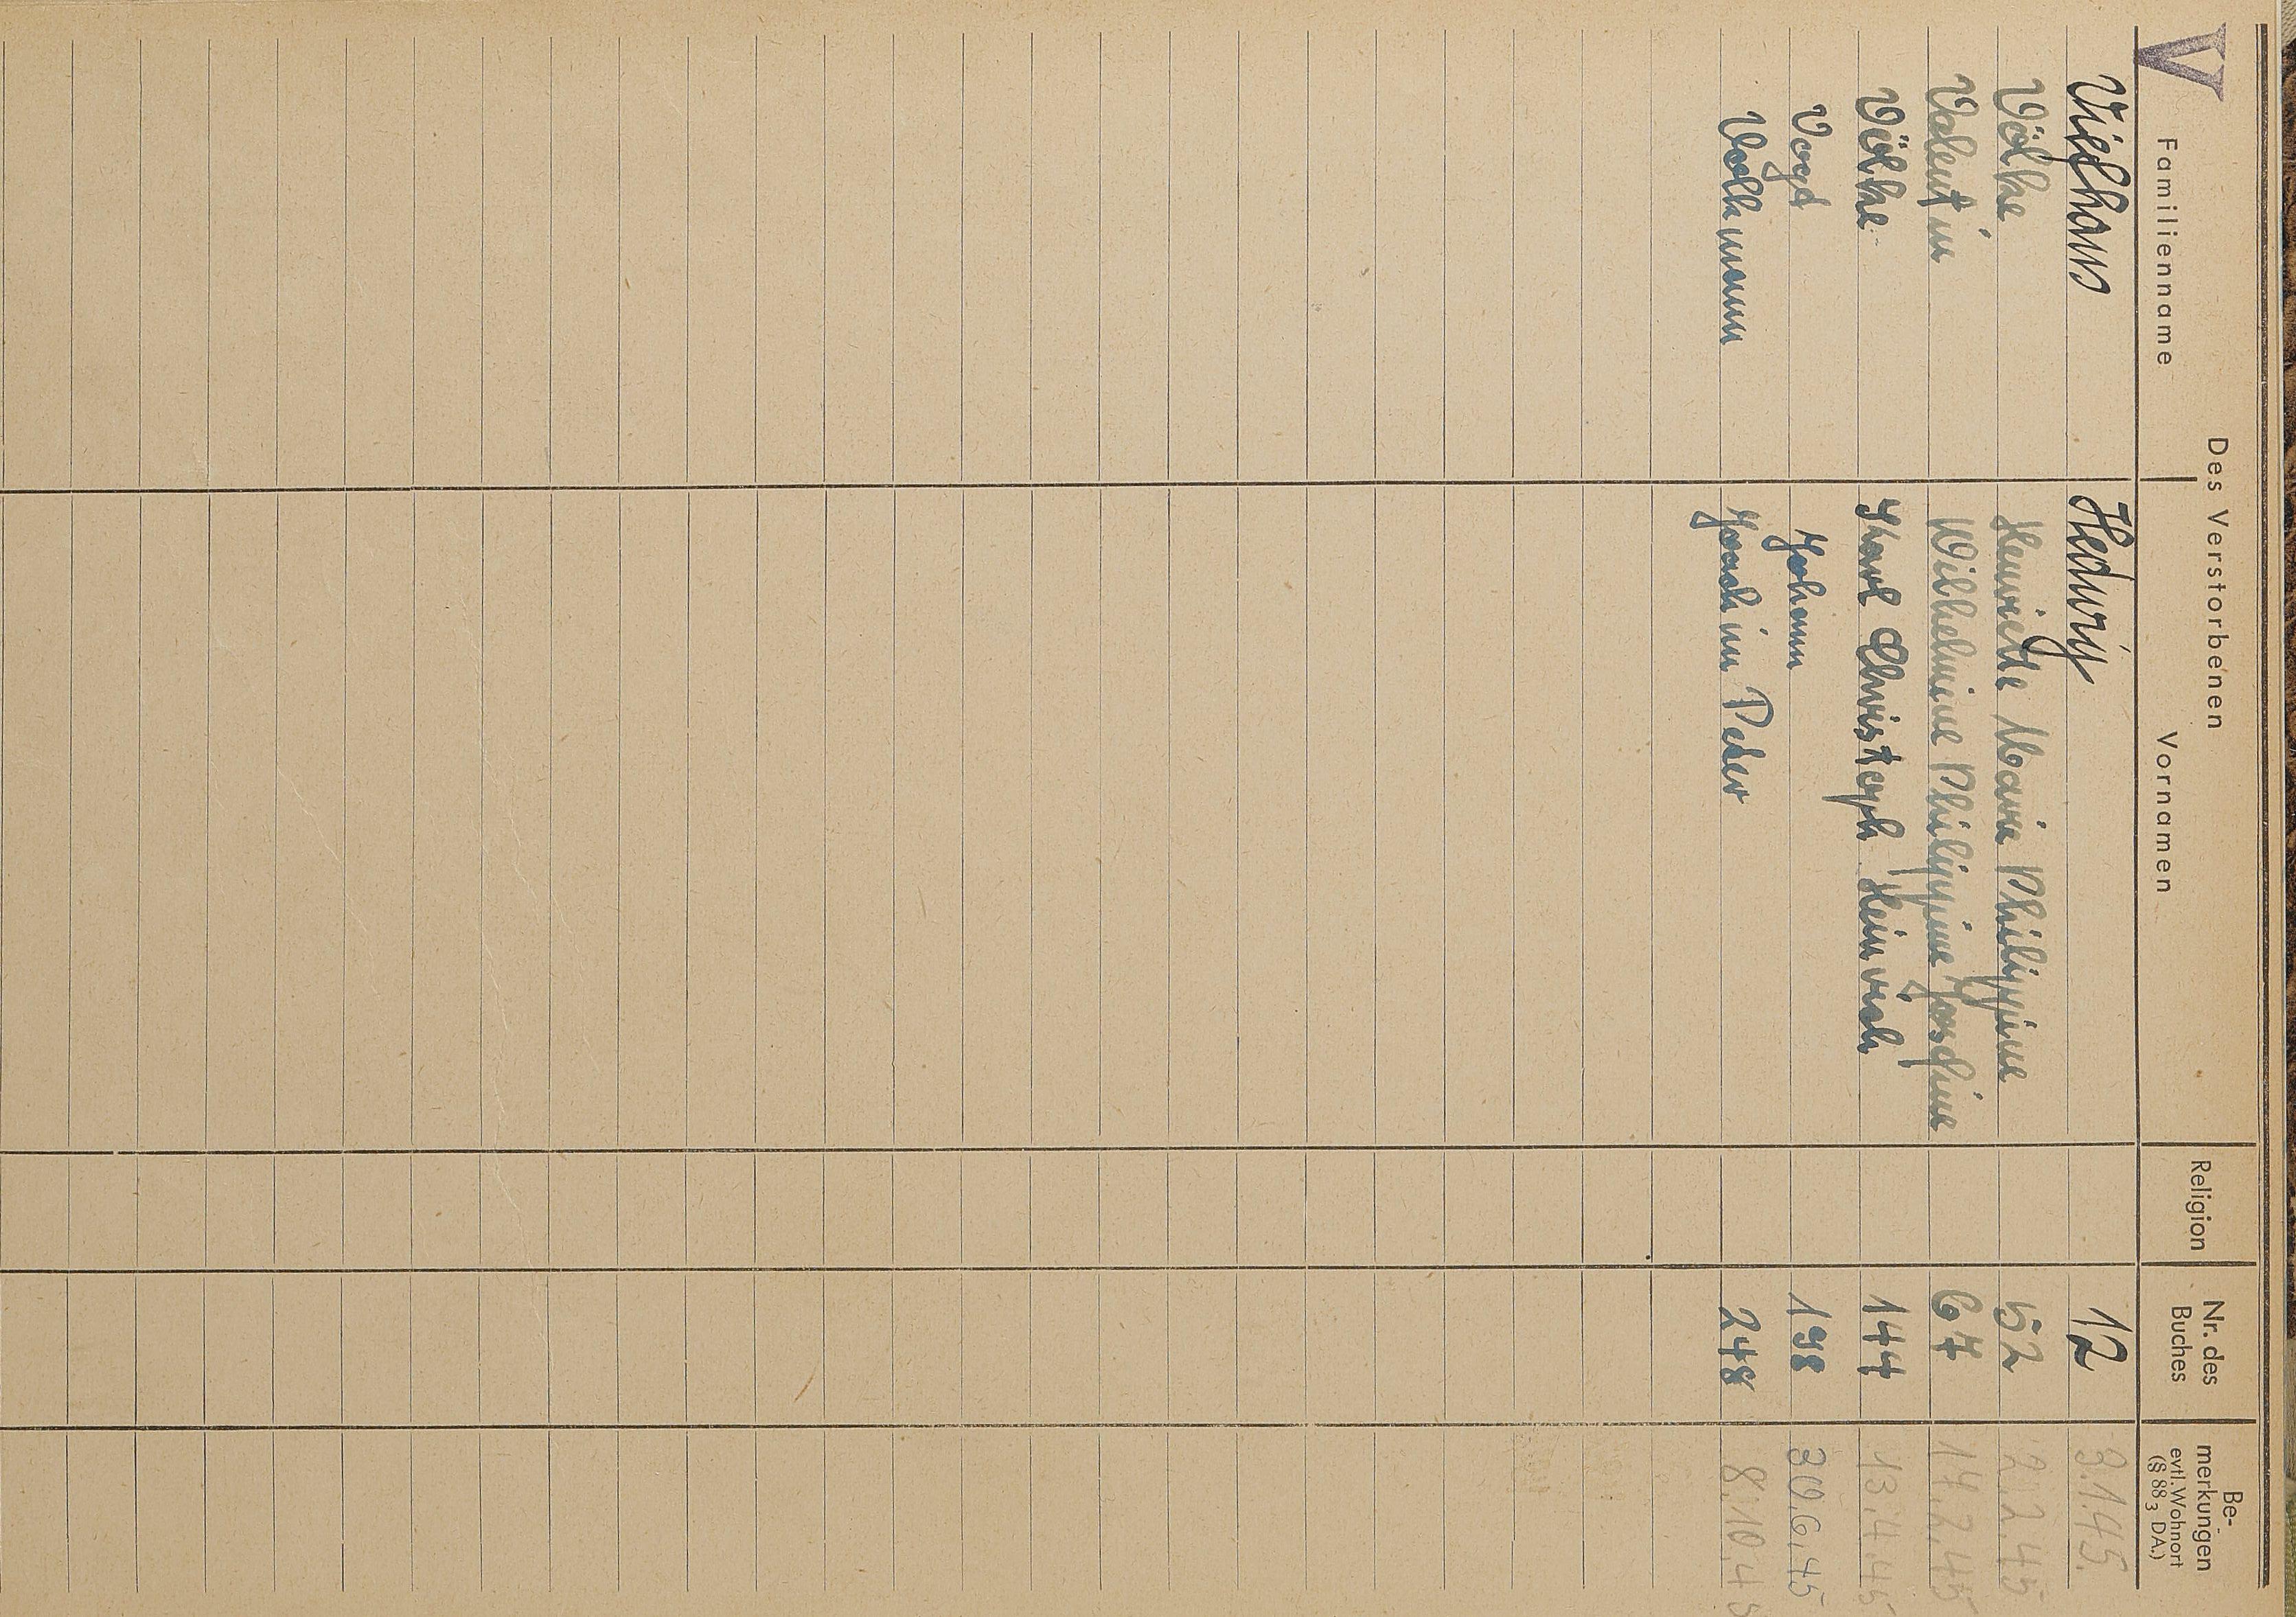 V
Des Verstorbenen
Familienname Vornamen Religion Nr. des Buches Be- merkungen evtl. Wohnort (§ 88 3 DA.)
Viethaus Hedwig 12 3.1.45.
Völke Henriette Maria Philippine 52 2.2.45
Valentin Wilhelmine Philippine Josefine 67 17.2.45
Völke Karl Christoph Heinrich 144 13.4.45
Vogt Johann 198 30.6.45
Volkmann Joachim Peter 248 8.10.45